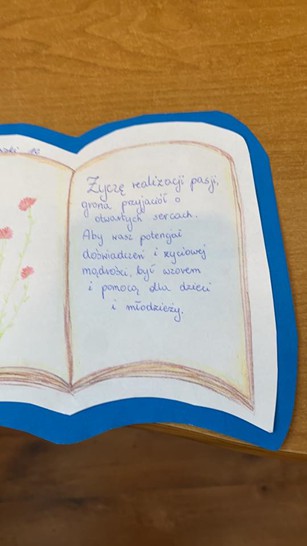 Życzę realizacji pasji,
grona przyjaciół o
otwartych sercach.
Aby wasz potencjał
doświadczeń i życiowej
mądrości, był wzorem
i pomocą dla dzieci
i młodzieży.